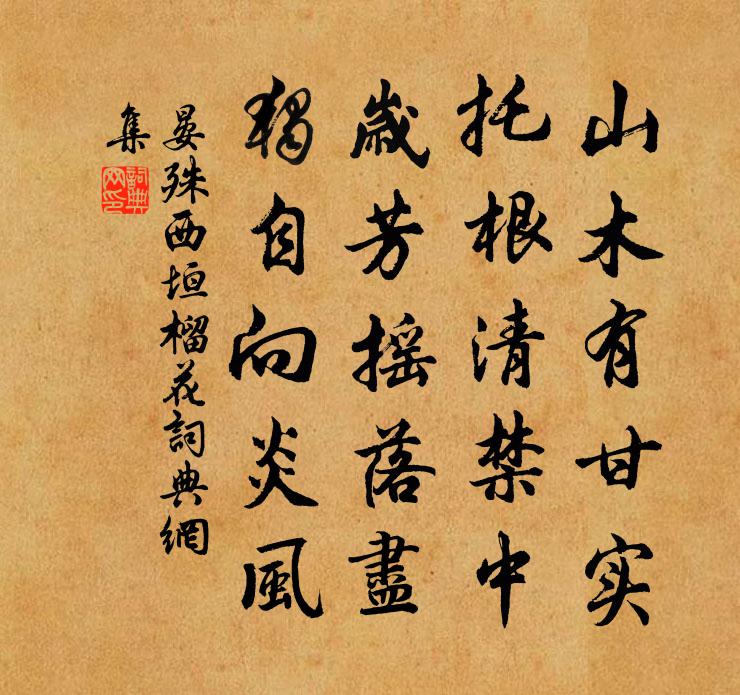 山木有甘实
托根清禁中
歳芳摇落盡
獨自向炎風
晏殊西垣榴花詞典網
集
詞典
网印